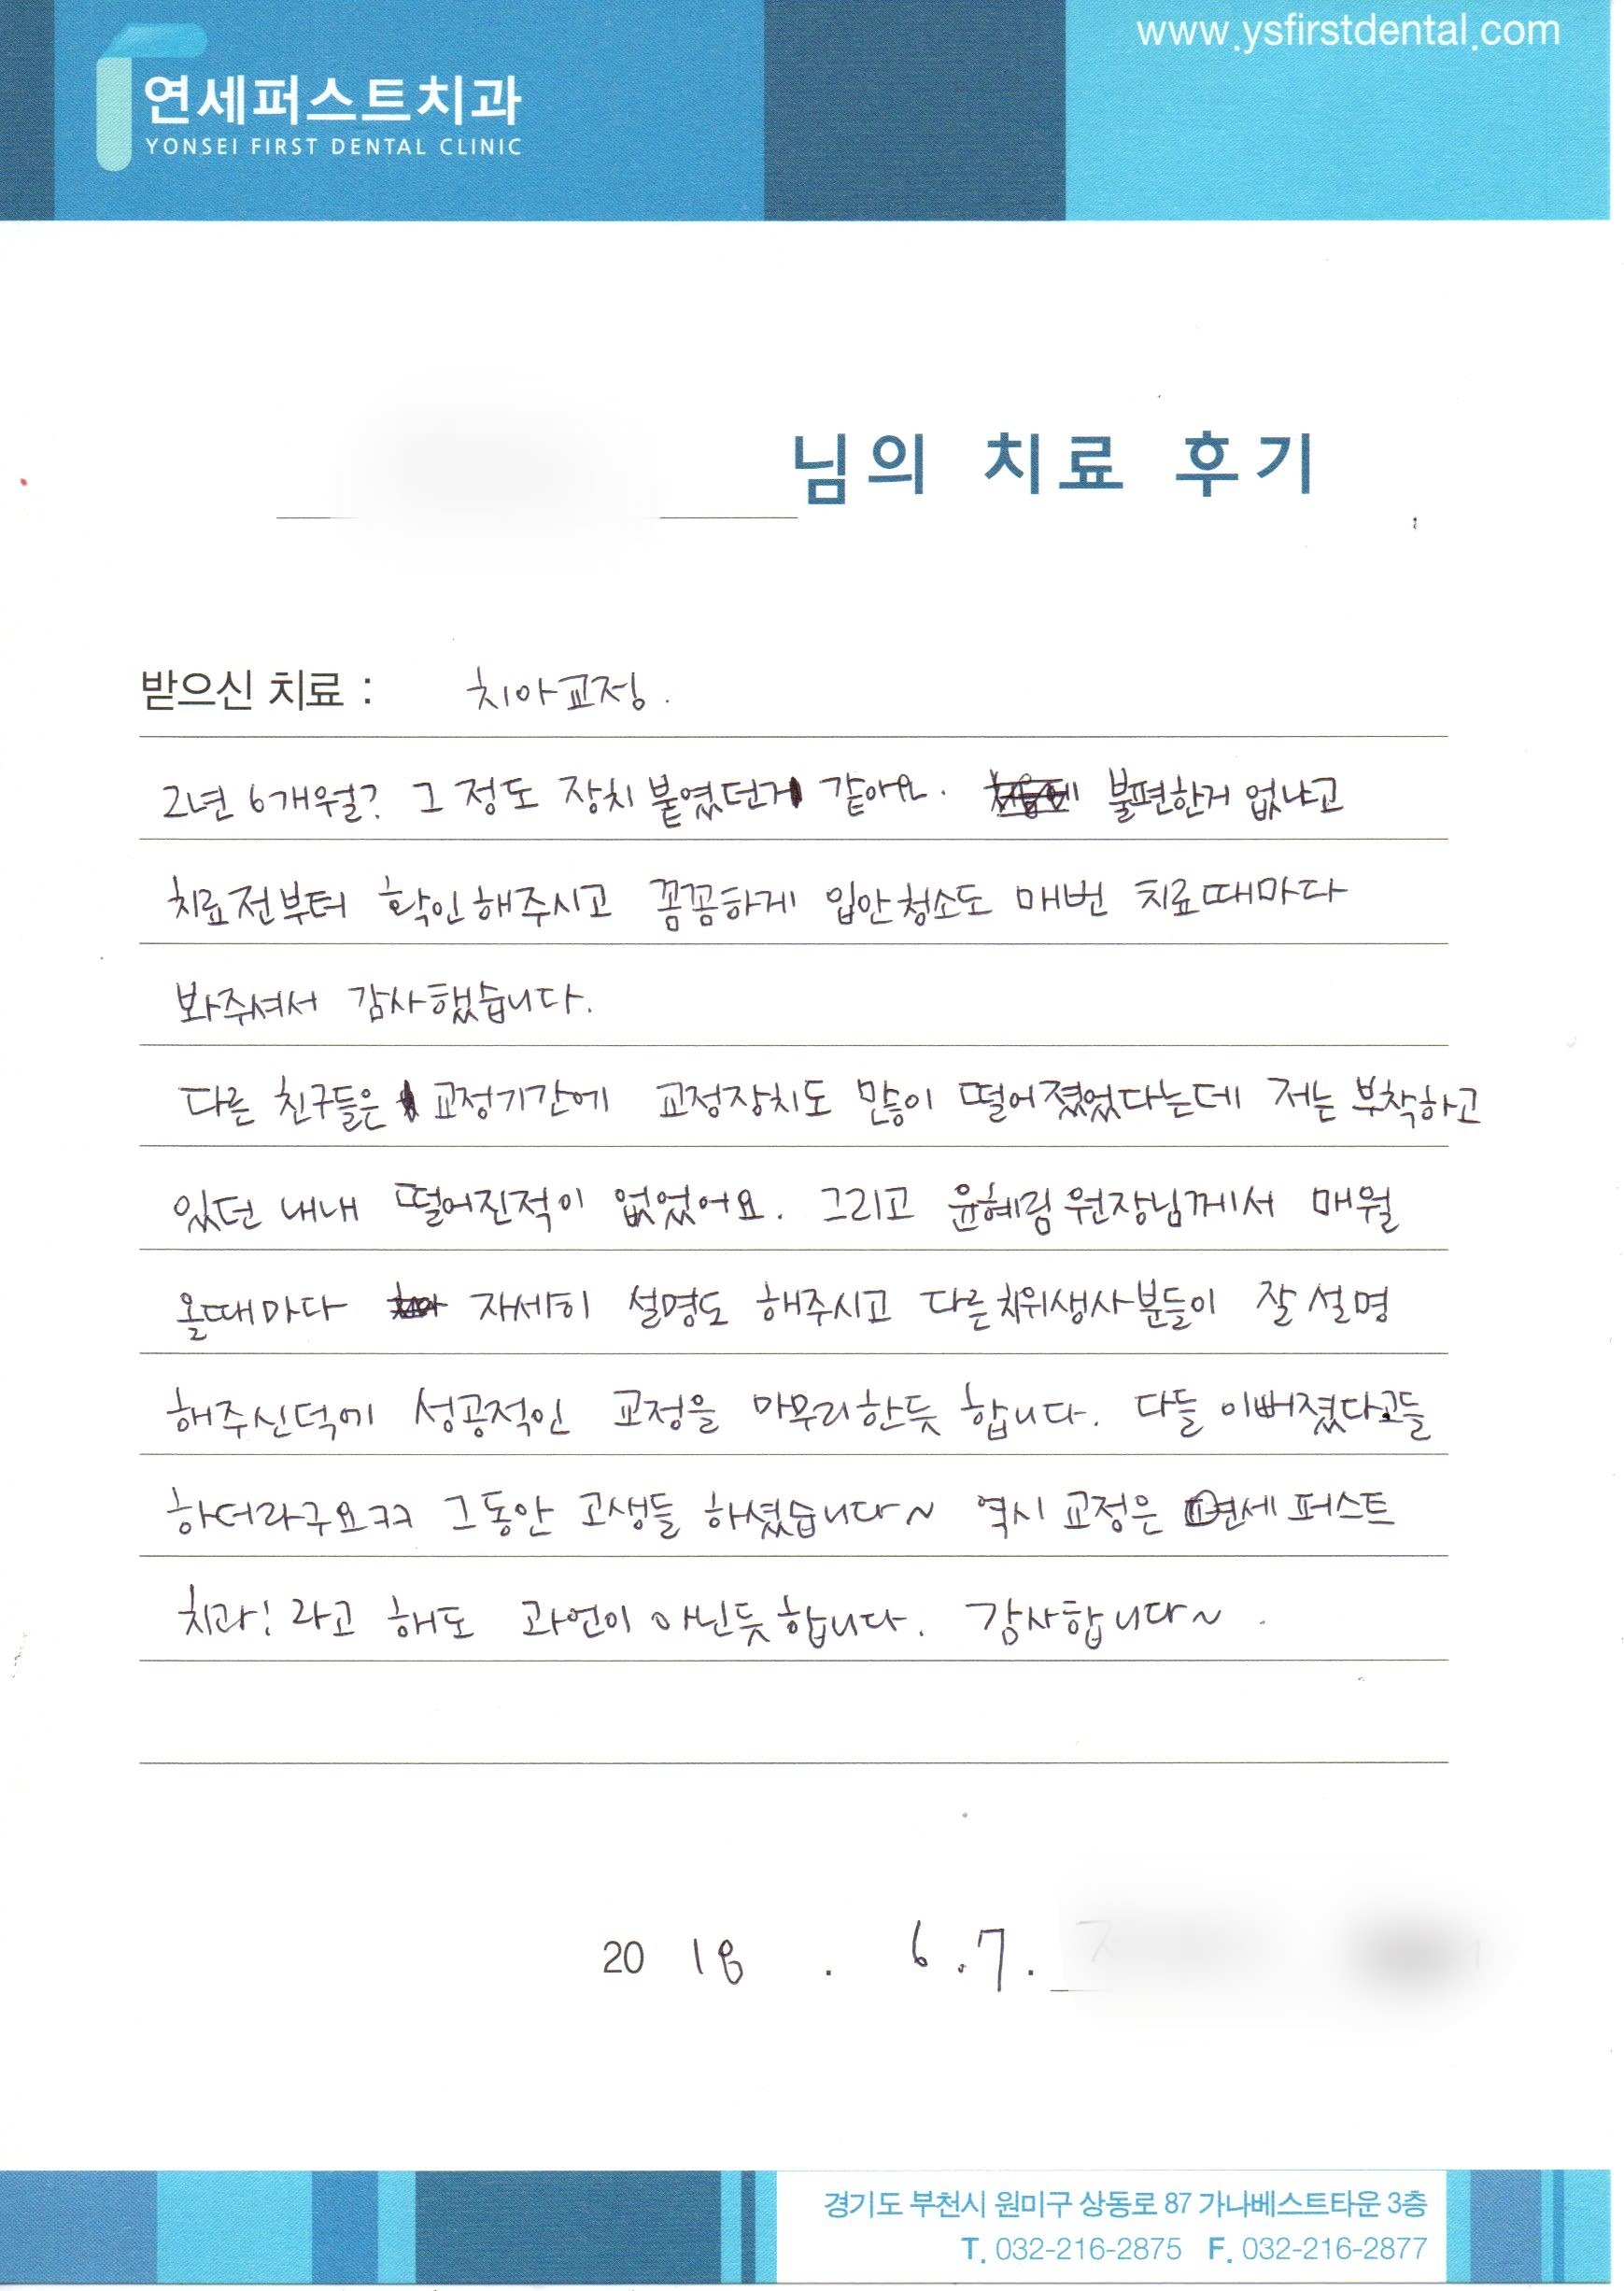 www.ysfirstdental.com
연세퍼스트치과
YONSEI FIRST DENTAL CLINIC
님의 치료 후기
받으신 치료 : 치아교정.
2년 6개월? 그 정도 장치 붙였던거 같아요. 불편한거 없냐고
치료전부터 확인해주시고 꼼꼼하게 입안청소도 매번 치료때마다
봐주셔서 감사했습니다.
다른 친구들은 교정기간에 교정장치도 많이 떨어졌었다는데 저는 부착하고
있던 내내 떨어진적이 없었어요. 그리고 윤혜림 원장님께서 매월
올때마다 자세히 설명도 해주시고 다른 치위생사분들이 잘 설명
해주신덕에 성공적인 교정을 마무리한듯 합니다. 다들 이뻐졌다고들
하더라구요ㅋㅋ 그동안 고생들 하셨습니다~ 역시 교정은 연세 퍼스트
치과! 라고 해도 과언이 아닌듯합니다. 감사합니다~.
2018 . 6.7.
경기도 부천시 원미구 상동로 87 가나베스트타운 3층
T. 032-216-2875 F. 032-216-2877